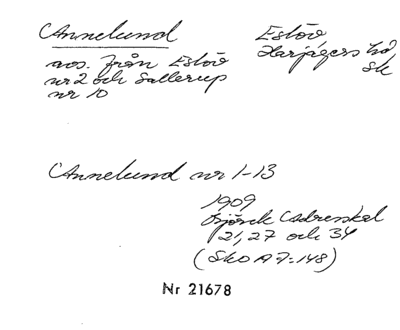 Annelund
Eslöv
avs. från Eslöv
Harjagers hd
nr 2 och Sallerup
sk
nr 10
Annelund nr 1-13
1909
21, 27 och 34
(SkO A7:148)
Nr 21678